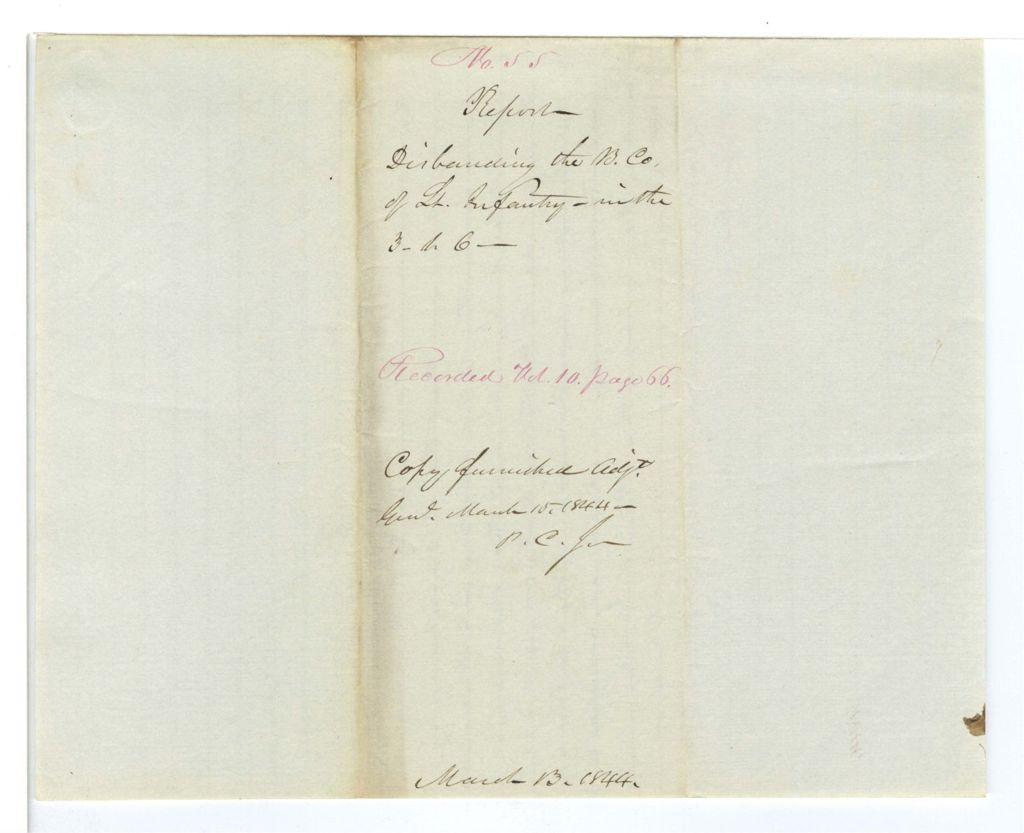 No. 55
Report
Disbanding the B. Co.
of Lt. Infantry - in the
3 - 6 -
Recorded Vol. 10. page 66.
Copy furnished Adjt.
Genl. March 15, 1844 -
P. C. Jr
March 13. 1844.